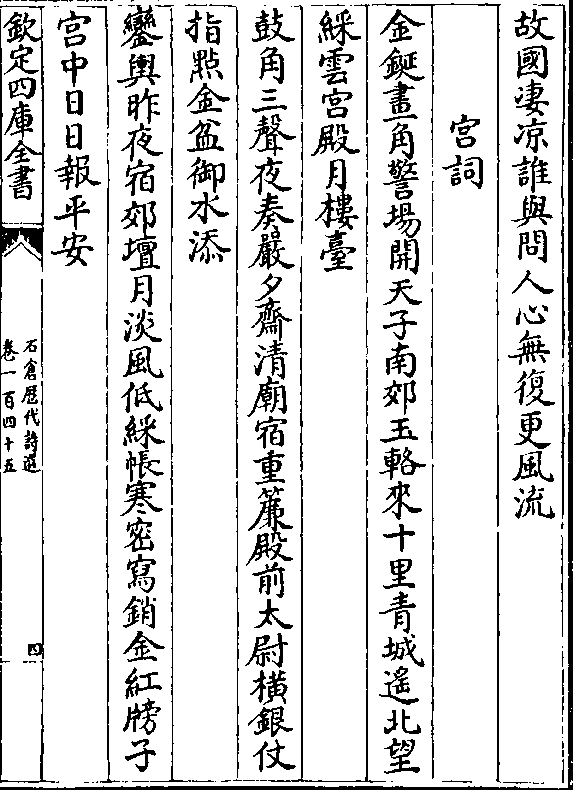 故國凄凉誰與問人心無復更風流
宮詞
金鋋畫角警場開天子南郊玉輅來十里青城遙北望
綵雲宮殿月樓臺
鼓角三聲夜奏嚴夕齋清廟宿重簾殿前太尉橫銀仗
指㸃金盆御水添
鑾輿昨夜宿郊壇月淡風低綵帳寒密寫銷金紅牓子
宮中日日報平安
欽定四庫全書
石倉歴代詩選
卷一百四十五
四